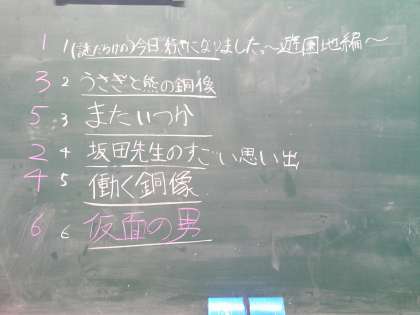 1 1 (謎だらけの)今日行くになりました。〜遊園地編〜
3 2 うさぎと熊の銅像
5 3 またいつか
2 4 坂田先生のすごい思い出
4 5 働く銅像
6 6 仮面の男